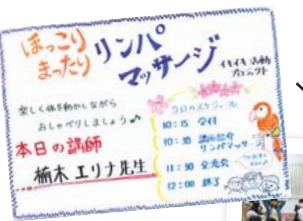 ほっこり
まったり
リンパ
マッサージ
イキイキ活動
プロジェクト
楽しく体を動かしながら
おしゃべりしましょう♪
本日の講師
楠木エリナ先生
今日のスケジュール
10:15 受付
10:30 講師紹介
リンパマッサージ
11:30 交流会
12:00 終了